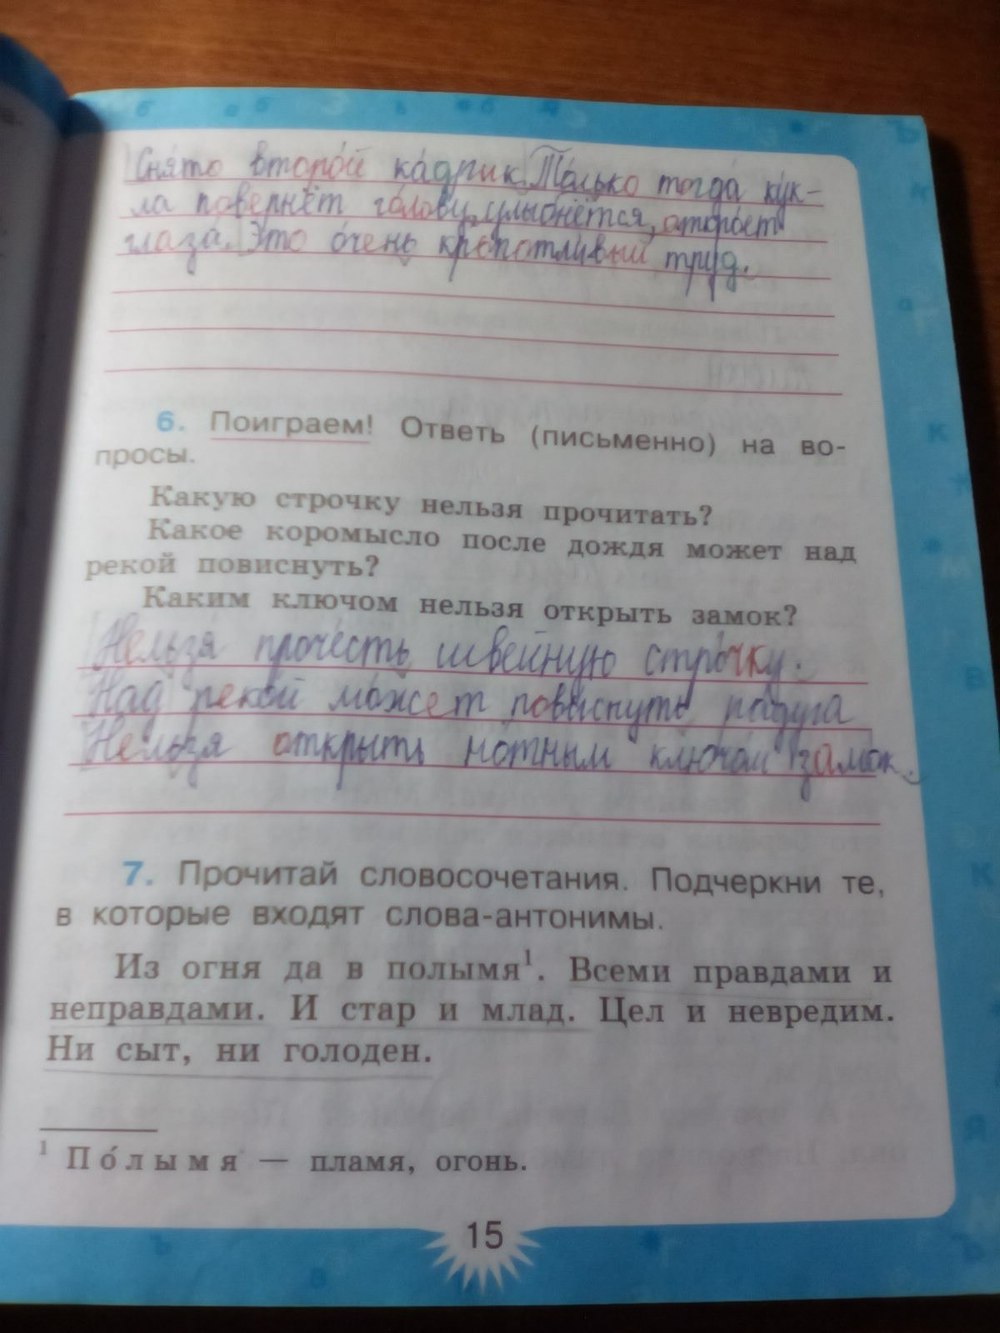 Снято второй кадрик. Только тогда кук-
ла повернёт голову, улыбнётся, откроет
глаза. Это очень кропотливый труд.
6. Поиграем! Ответь (письменно) на во-
просы.
Какую строчку нельзя прочитать?
Какое коромысло после дождя может над
рекой повиснуть?
Каким ключом нельзя открыть замок?
Нельзя прочесть швейную строчку.
Над рекой может повиснуть радуга
Нельзя открыть нотным ключом замок.
7. Прочитай словосочетания. Подчеркни те,
в которые входят слова-антонимы.
Из огня да в полымя¹. Всеми правдами и
неправдами. И стар и млад. Цел и невредим.
Ни сыт, ни голоден.
¹ По́лымя — пламя, огонь.
15